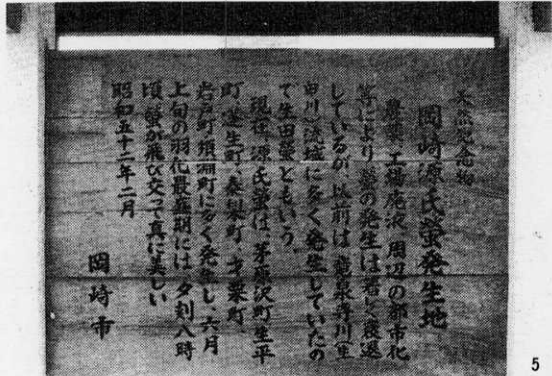 天然記念物
岡崎源氏螢発生地
農薬、工場廃液、周辺の都市化
等により、螢の発生は著しく衰退
しているが、以前は竜泉寺川(生
田川)流域に多く発生していたの
で生田螢ともいう。
現在、源氏螢は、茅原沢町、生平
町、蓬生町、秦梨町、才栗町、
岩戸町、須淵町に多く発生し、六月
上旬の羽化最盛期には、夕刻八時
頃、螢が飛び交って真に美しい
昭和五十二年二月
岡崎市
5